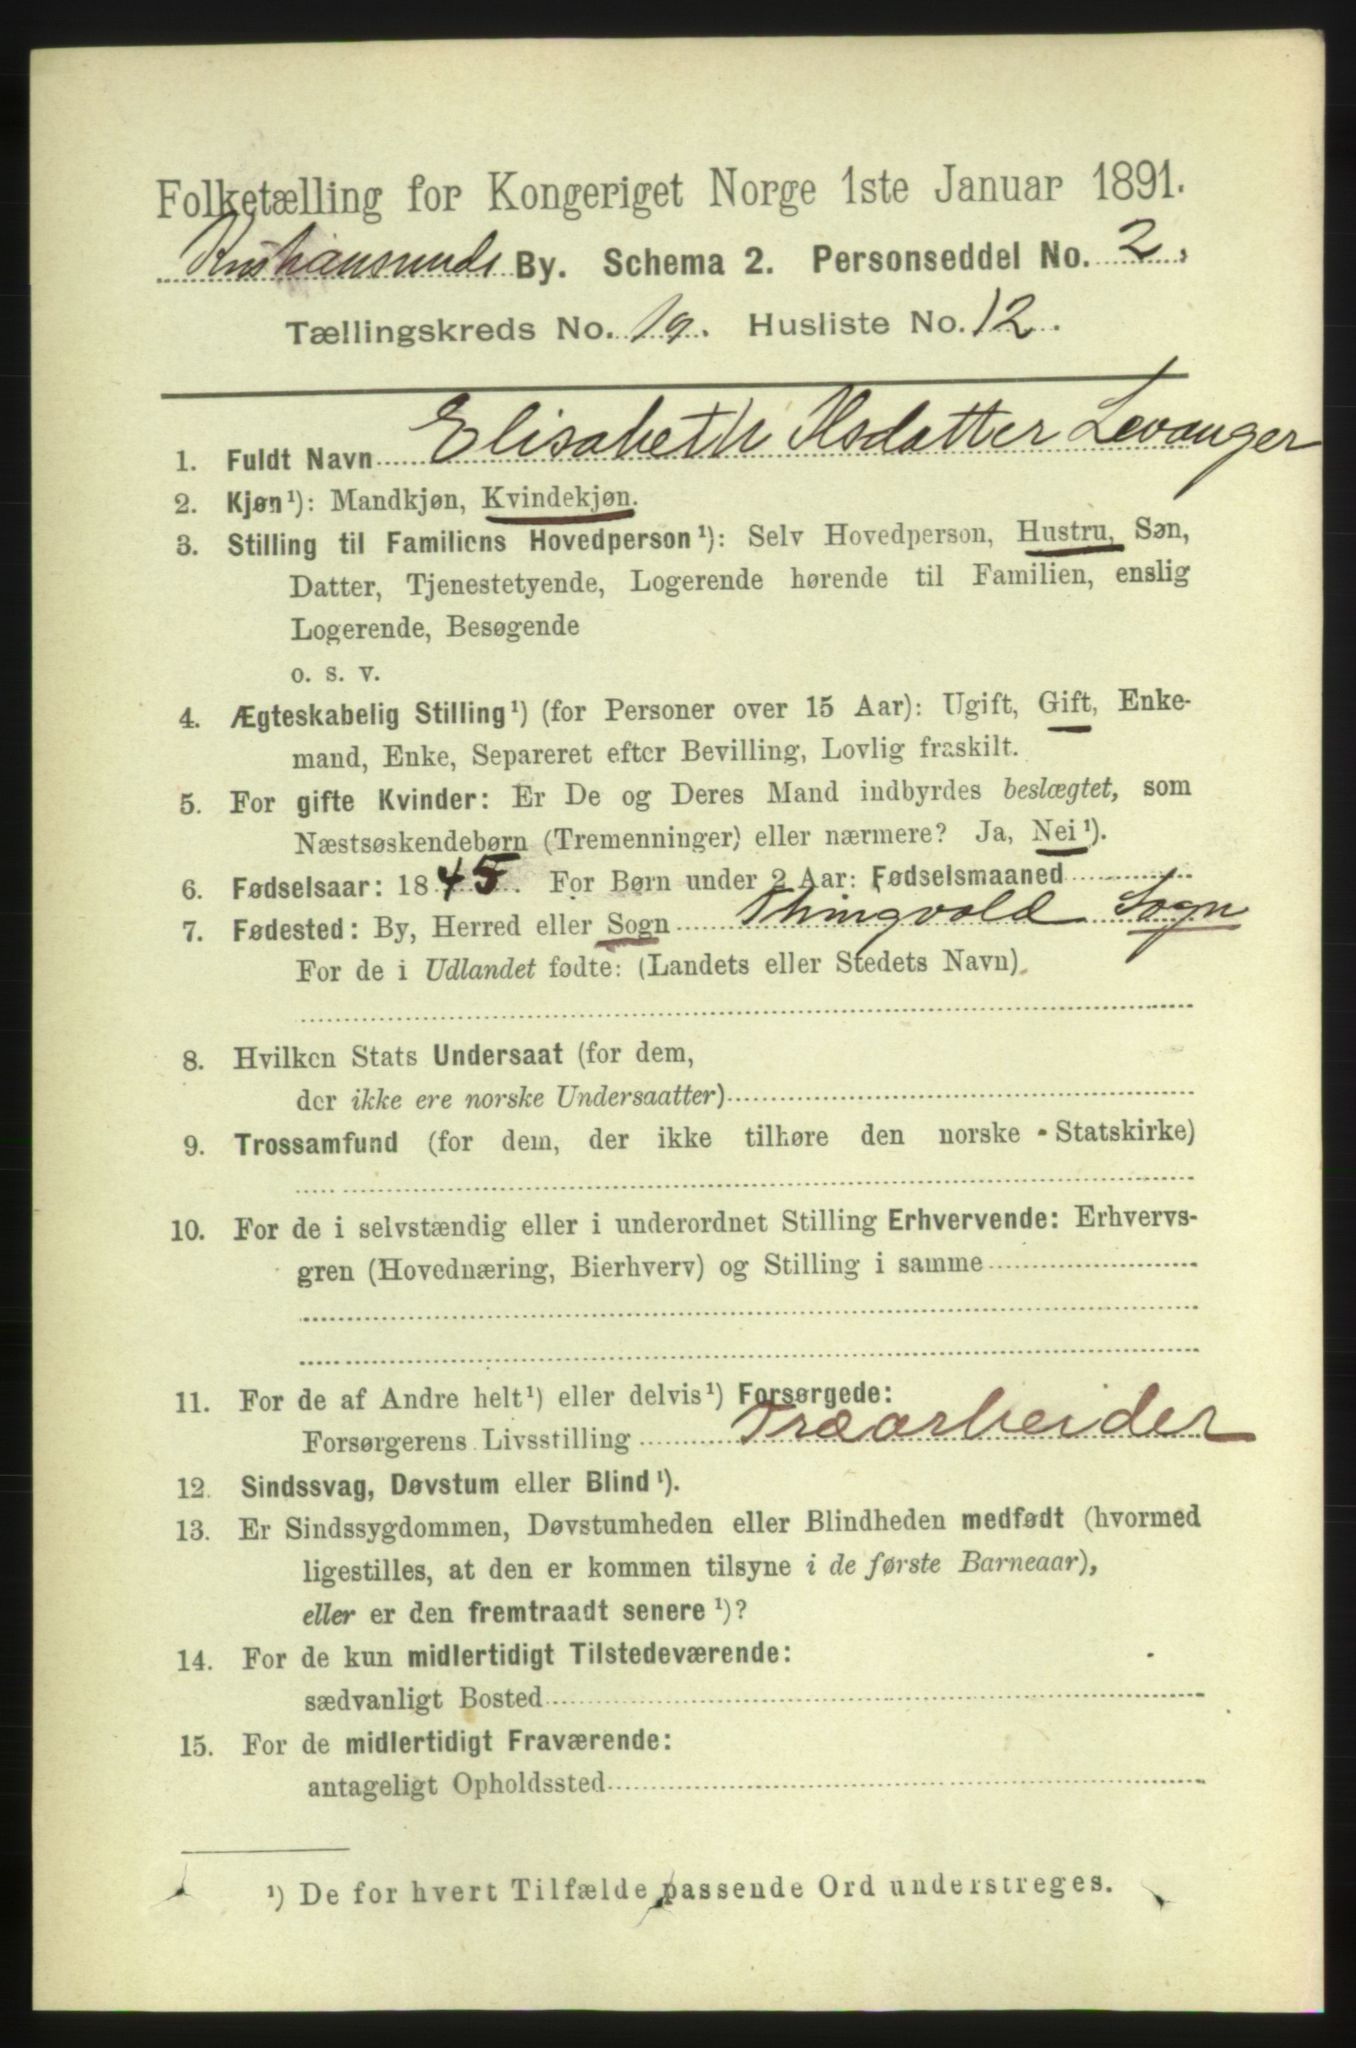 Folketælling for Kongeriget Norge 1ste Januar 1891.
Kristiansunds By. Schema 2. Personseddel No. 2.
Tællingskreds No. 19. Husliste No. 12.
1. Fuldt Navn Elisabeth Ilsdatter Levanger
2. Kjøn¹): Mandkjøn, Kvindekjøn.
3. Stilling til Familiens Hovedperson¹): Selv Hovedperson, Hustru, Søn,
Datter, Tjenestetyende, Logerende hørende til Familien, enslig
Logerende, Besøgende
o. s. v.
4. Ægteskabelig Stilling¹) (for Personer over 15 Aar): Ugift, Gift, Enke-
mand, Enke, Separeret efter Bevilling, Lovlig fraskilt.
5. For gifte Kvinder: Er De og Deres Mand indbyrdes beslægtet, som
Næstsøskendebørn (Tremenninger) eller nærmere? Ja, Nei¹).
6. Fødselsaar: 1845. For Børn under 2 Aar: Fødselsmaaned
7. Fødested: By, Herred eller Sogn Thingvold Sogn
For de i Udlandet fødte: (Landets eller Stedets Navn)
8. Hvilken Stats Undersaat (for dem,
der ikke ere norske Undersaatter)
9. Trossamfund (for dem, der ikke tilhøre den norske Statskirke)
10. For de i selvstændig eller i underordnet Stilling Erhvervende: Erhvervs-
gren (Hovednæring, Bierhverv) og Stilling i samme
11. For de af Andre helt¹) eller delvis¹) Forsørgede:
Forsørgerens Livsstilling Træarbeider
12. Sindssvag, Døvstum eller Blind¹).
13. Er Sindssygdommen, Døvstumheden eller Blindheden medfødt (hvormed
ligestilles, at den er kommen tilsyne i de første Barneaar),
eller er den fremtraadt senere¹)?
14. For de kun midlertidigt Tilstedeværende:
sædvanligt Bosted
15. For de midlertidigt Fraværende:
antageligt Opholdssted
¹) De for hvert Tilfælde passende Ord understreges.